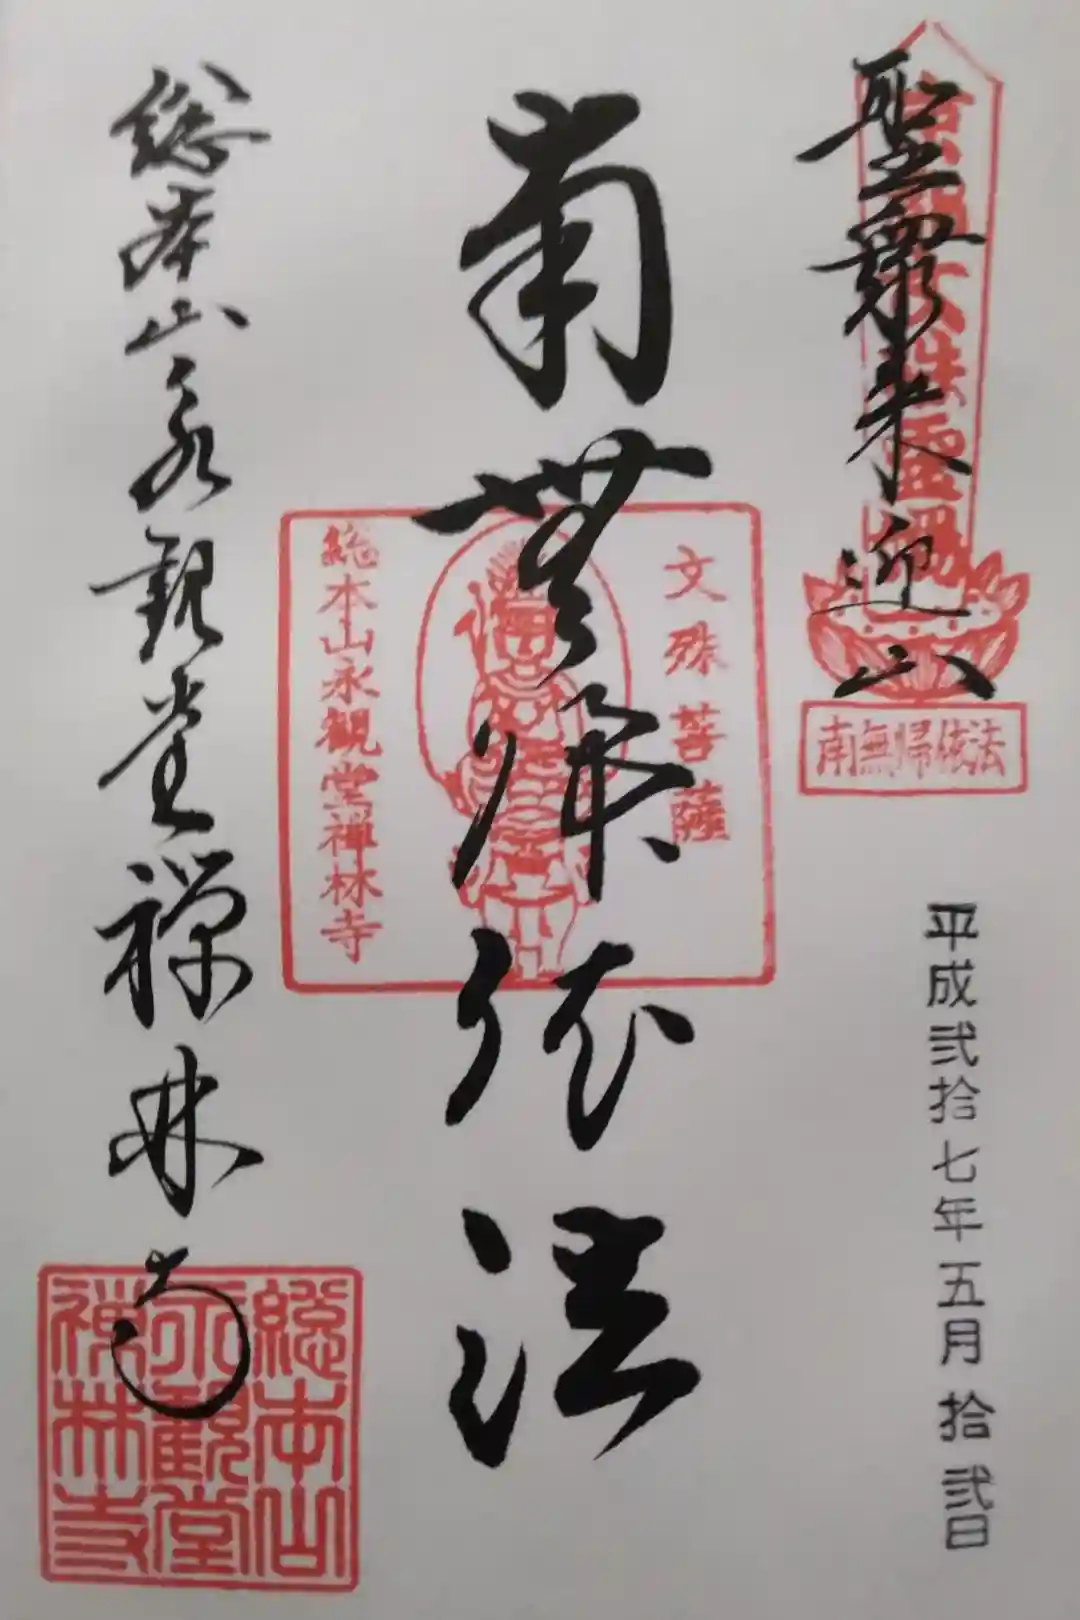 聖衆来迎山
京都文殊霊場
南無帰依法
平成弐拾七年五月拾弐日
南無帰依法
文殊菩薩
総本山永観堂禅林寺
総本山永観堂禅林寺
総本山
永観堂
禅林寺